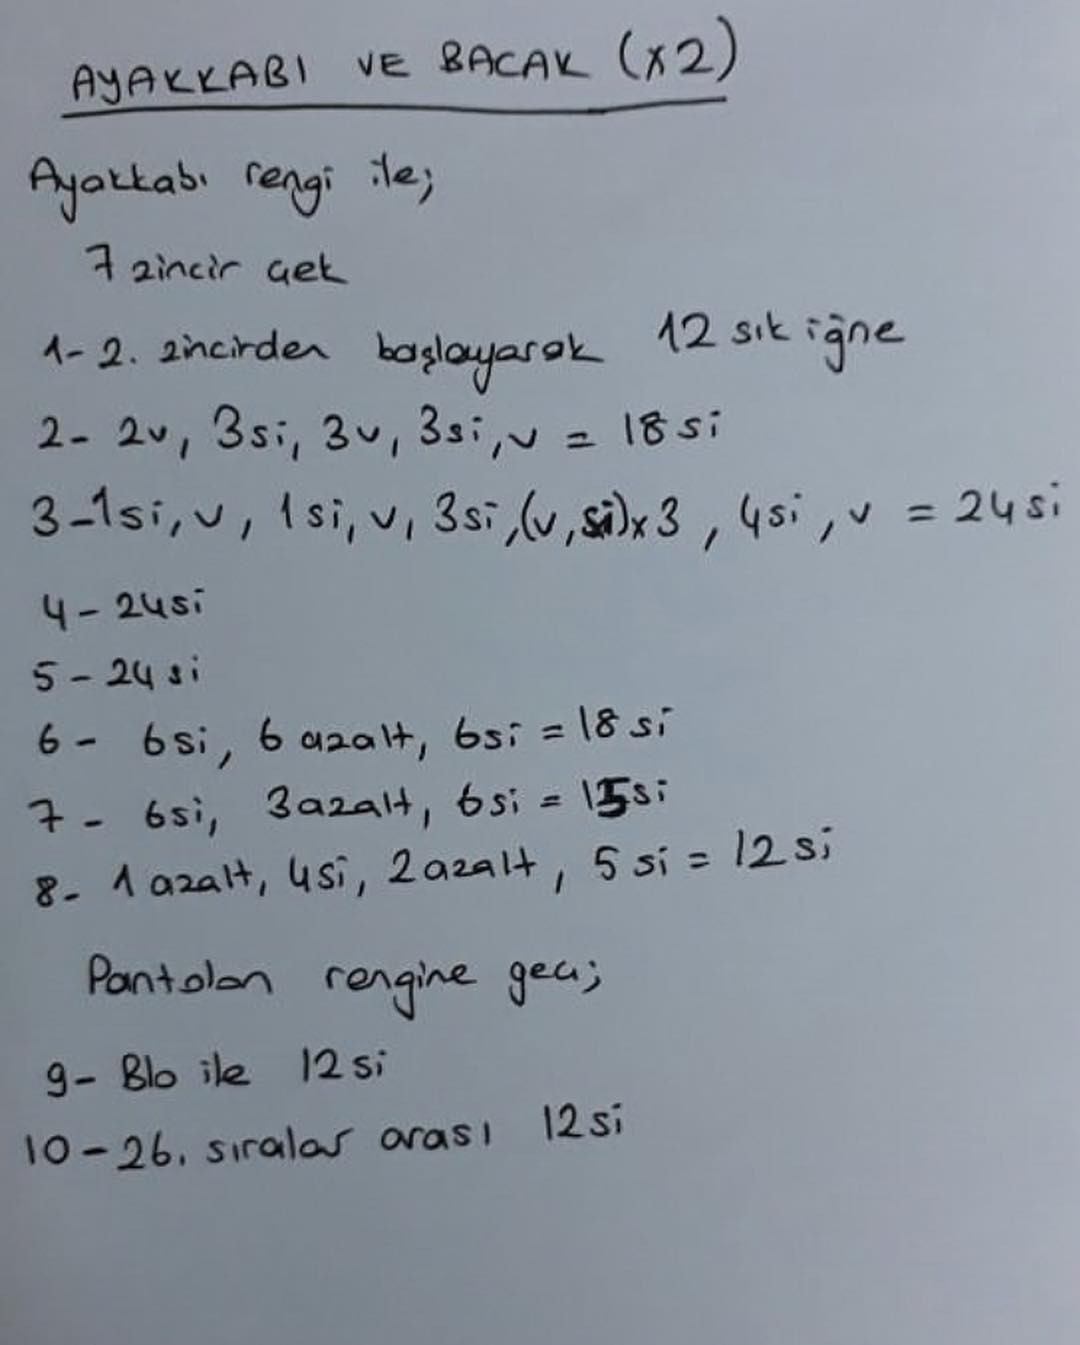 AYAKKABI VE BACAK (x2)
Ayakkabı rengi ile;
7 zincir çek
1- 2. zincirden başlayarak 12 sık iğne
2- 2v, 3si, 3v, 3si, v = 18 si
3-1si, v, 1si, v, 3si, (v, si)x3, 4si, v = 24si
4- 24si
5- 24si
6- 6si, 6 azalt, 6si = 18 si
7- 6si, 3azalt, 6si = 15si
8- 1 azalt, 4si, 2azalt, 5 si = 12 si
Pantolon rengine geç;
9- Blo ile 12 si
10-26. sıralar arası 12si